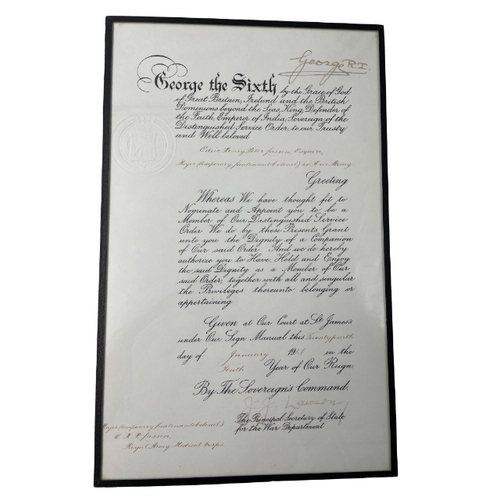 George R.I.
George the Sixth by the Grace of God
of Great Britain, Ireland and the British
Dominions beyond the Seas, King, Defender of
the Faith, Emperor of India, Sovereign of the
Distinguished Service Order, to our Trusty
and Well beloved
Esquire,
Major (temporary Lieutenant-Colonel) in Our Army
Greeting
Whereas We have thought fit to
Nominate and Appoint you to be a
Member of Our Distinguished Service
Order We do by these Presents Grant
unto you the Dignity of a Companion
of Our said Order And we do hereby
authorize you to Have, Hold and Enjoy
the said Dignity as a Member of Our
said Order, together with all and singular
the Privileges thereunto belonging or
appertaining.
Given at Our Court at St. James's
under Our Sign Manual this
day of January 19 in the
Tenth Year of Our Reign.
By The Sovereign's Command,
J. J. Lawson
The Principal Secretary of State
for the War Department
Major (temporary Lieutenant-Colonel)
Royal Army Medical Corps